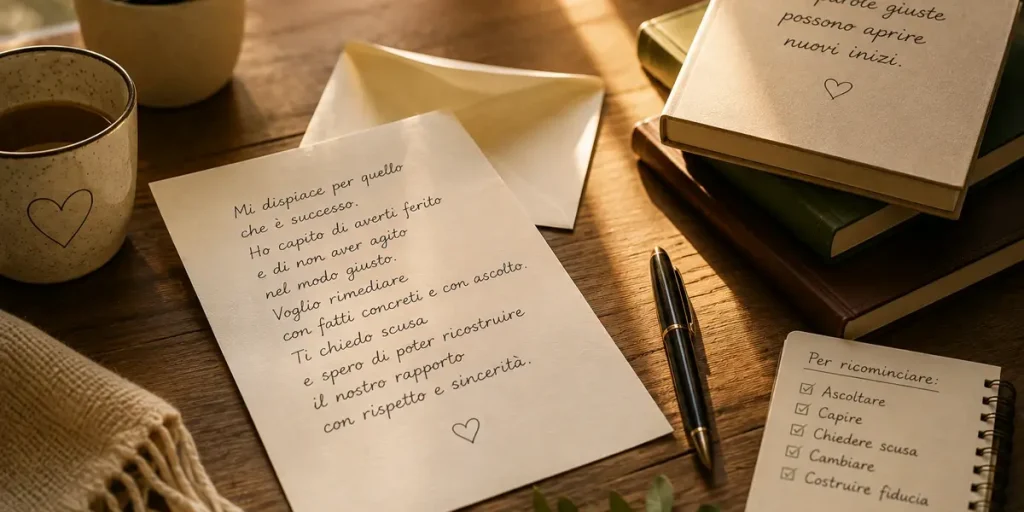 Mi dispiace per quello
che è successo.
Ho capito di averti ferito
e di non aver agito
nel modo giusto.
Voglio rimediare
con fatti concreti e con ascolto.
Ti chiedo scusa
e spero di poter ricostruire
il nostro rapporto
con rispetto e sincerità.
parole giuste
possono aprire
nuovi inizi.
Per ricominciare:
Ascoltare
Capire
Chiedere scusa
Cambiare
Costruire fiducia